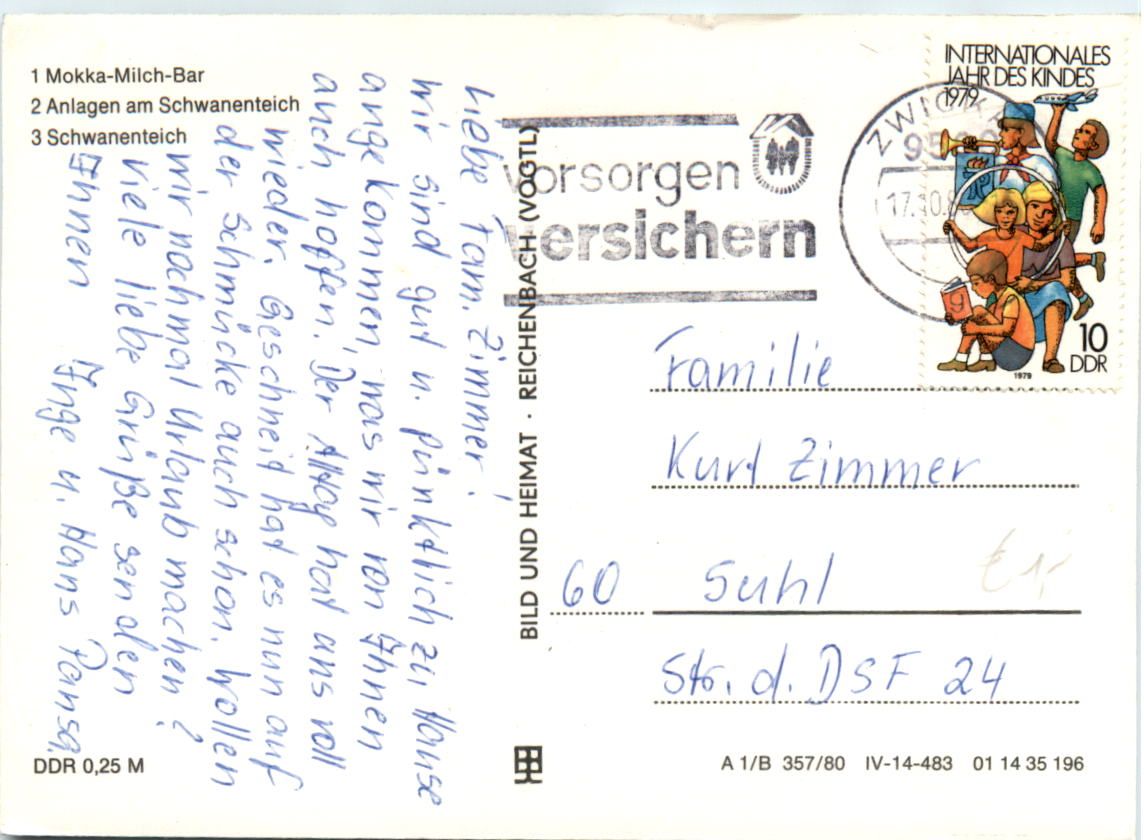 1 Mokka-Milch-Bar
2 Anlagen am Schwanenteich
3 Schwanenteich
Liebe Fam. Zimmer!
Wir sind gut u. pünktlich zu Hause
angekommen, was wir von Ihnen
auch hoffen. Der Alltag hat uns voll
wieder. Geschneit hat es nun auf
der Schmücke auch schon. Wollen
wir nochmal Urlaub machen?
Viele liebe Grüße senden
Ihnen Inge u. Hans Pansa
DDR 0,25 M
BILD UND HEIMAT · REICHENBACH (VOGTL)
Vorsorgen
versichern
ZWICKAU
17.10.
INTERNATIONALES
JAHR DES KINDES
1979
9
10
DDR
1979
Familie
Kurt Zimmer
60 Suhl
Str. d. DSF 24
€1,-
A 1/B 357/80 IV-14-483 01 14 35 196